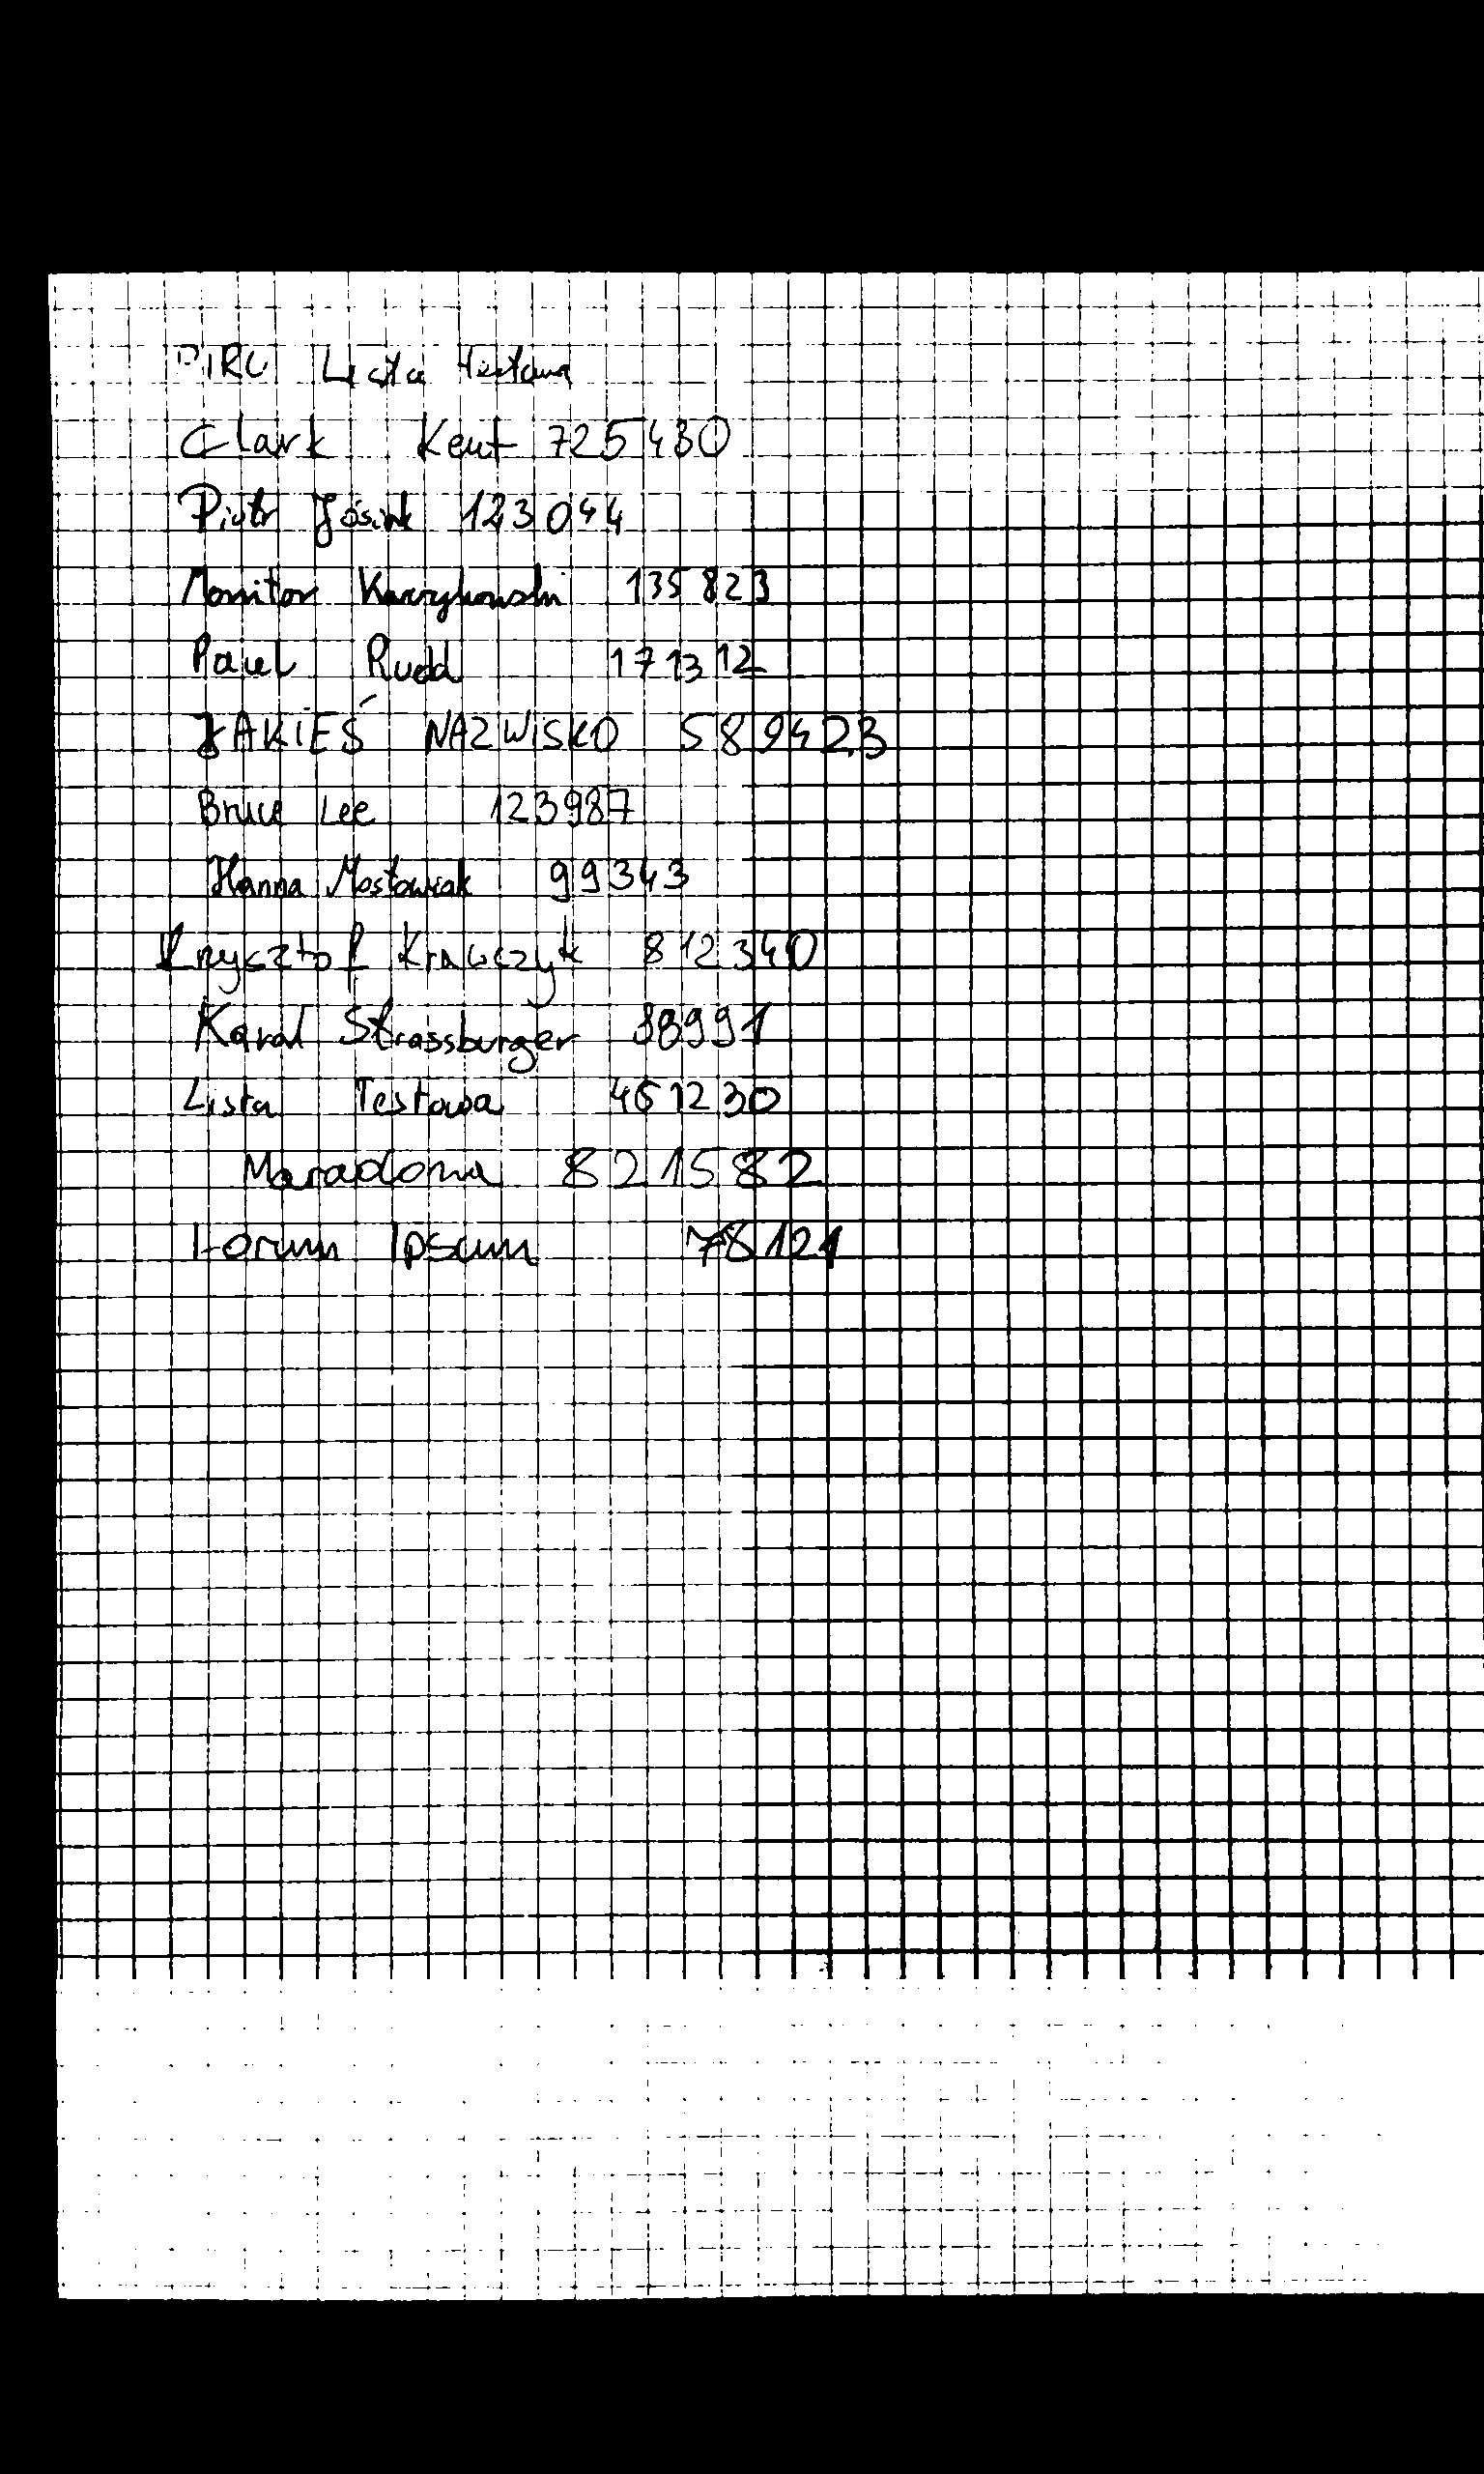 Lista testowa
Clark Kent 725430
Piotr 123044
Monitor 135823
Paul Rudd 171312
JAKIEŚ NAZWISKO 589423
Bruce Lee 123987
Hanna Mostowiak 99343
Krzysztof Krawczyk 812340
Karol Strassburger 88991
Lista Testowa 461230
Maradona 821582
Lorum Ipsum 78121